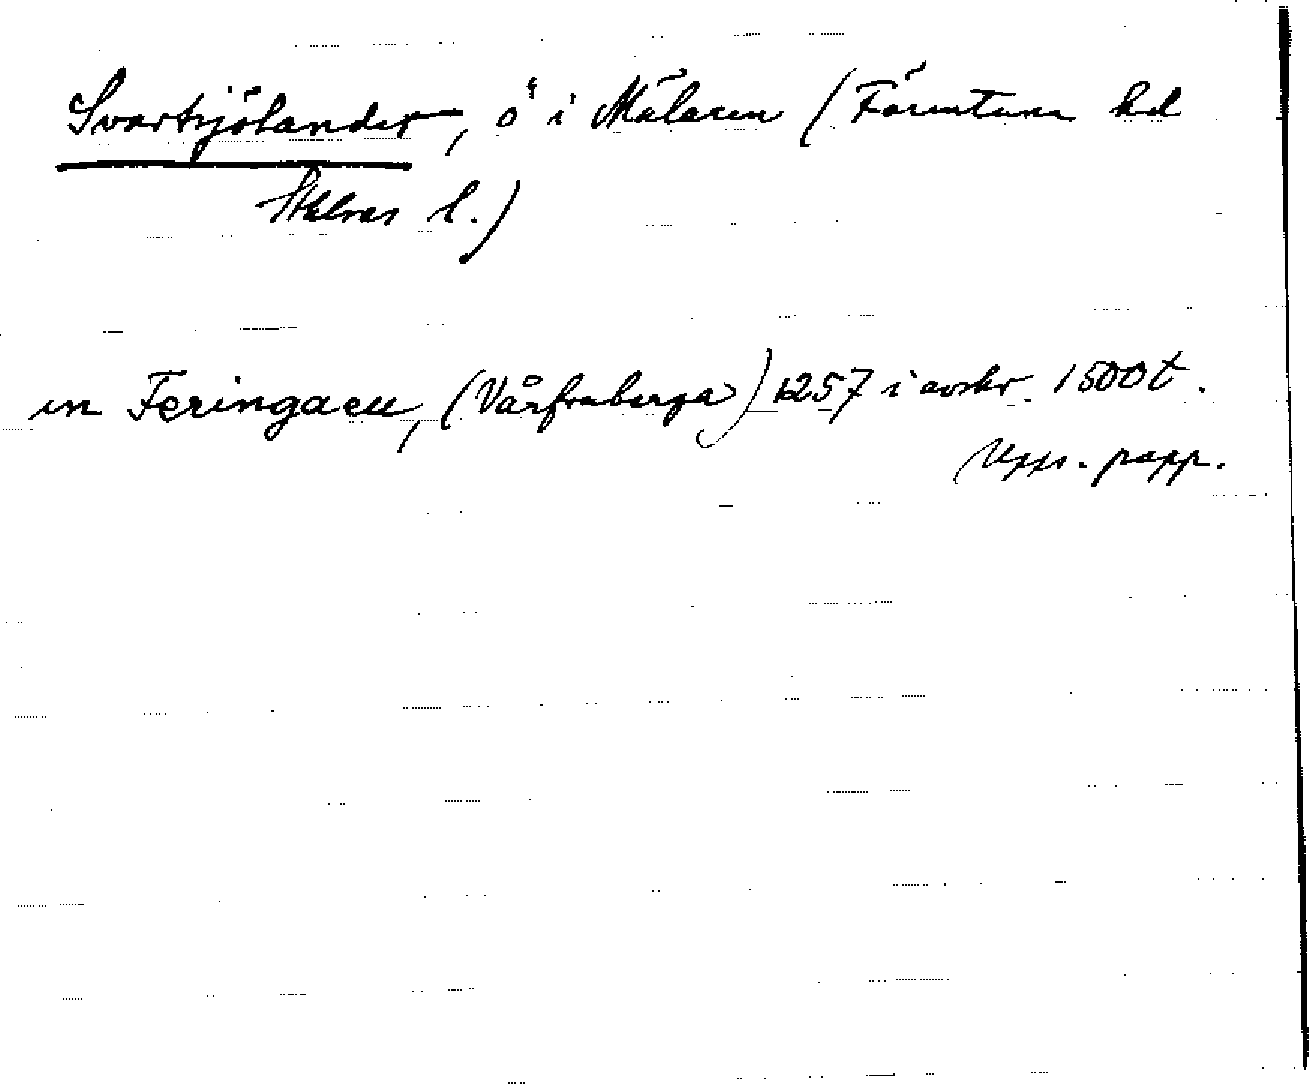 Svartsjölandet, ö i Mälaren (Färentuna hd
Sthlms l.)
in Feringaeu, (Vårfruberga) 1257 i avskr. 1500t.
Upps. papp.